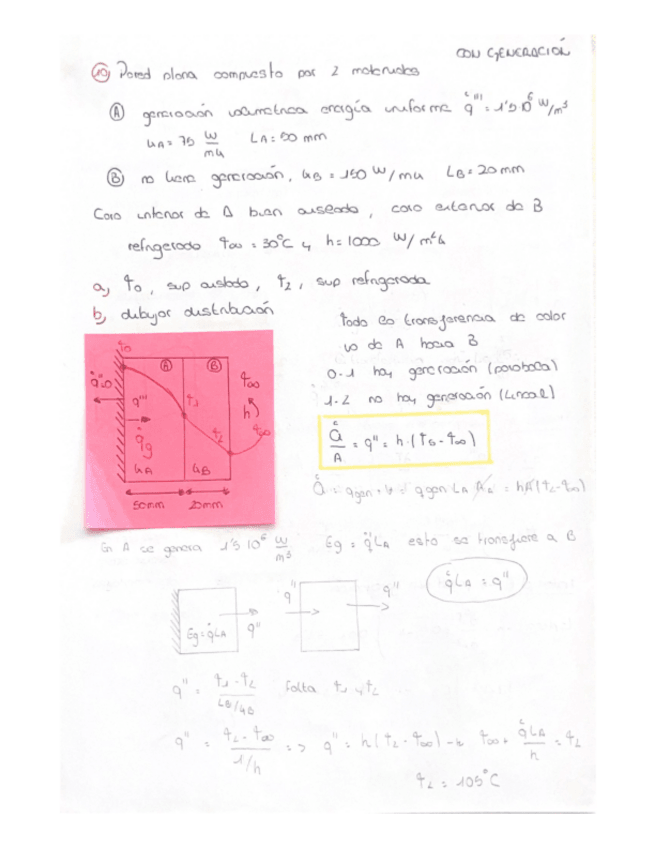 CON GENERACIÓN
10) Pared plana compuesto por 2 materiales
Ⓐ generación volumétrica energía uniforme q̇''' = 1'5 10⁶ W/m³
kA = 75 W/mk LA = 50 mm
Ⓑ no tiene generación, kB = 150 W/mk LB = 20 mm
Cara interior de A bien aislado, cara exterior de B
refrigerado T∞ = 30°C y h = 1000 W/m²k
a, T0, sup aislada, T2, sup refrigerada
b, dibujar distribución
Todo la transferencia de calor
va de A hacia B
0-1 hay generación (parábola)
1-2 no hay generación (lineal)
Q̇/A = q'' = h·(Ts - T∞)
T0
Ⓐ Ⓑ
q̇''=0
T∞
q'''
T1
h
q̇g
T2
T∞
kA kB
50mm 20mm
Q̇ = qgen · V = qgen LA A = hA(T2-T∞)
En A se genera 1'5 10⁶ W/m³ Eg = q̇LA esto se transfiere a B
q̇LA = q''
Eg = q̇LA q'' q'' q''
q'' = T1-T2 / LB/kB falta T1 y T2
q'' = T2-T∞ / 1/h => q'' = h(T2-T∞) → T∞ + q̇LA/h = T2
T2 = 105°C